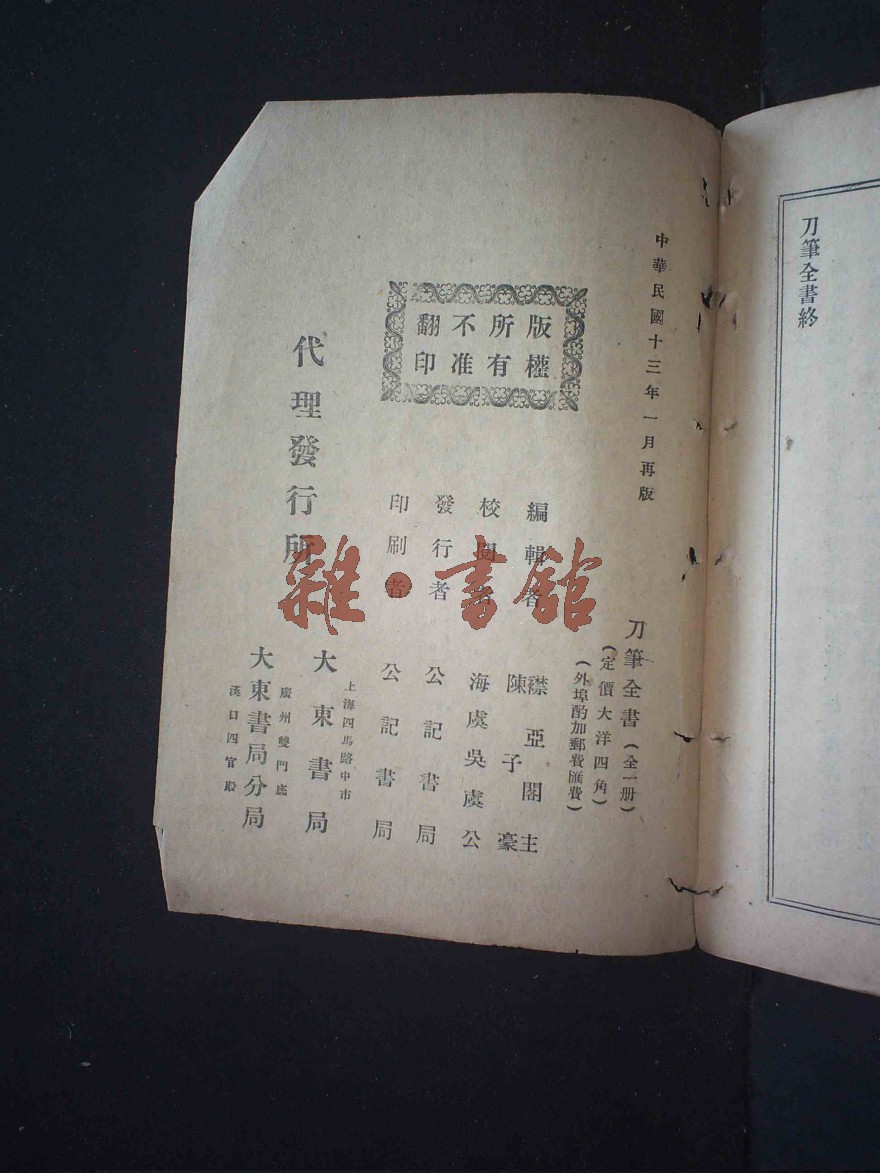 刀筆全書終
中華民國十三年一月再版
版權
所有
不准
翻印
刀筆全書(全一册)
(定價大洋四角)
(外埠酌加郵費匯費)
編輯者
襟亞閣主
陳子豪
校閱者
海虞吳虞公
發行者
公記書局
印刷者
公記書局
代理發行所
上海四馬路中市
大東書局
廣州雙門底
漢口四官殿
大東書局分局
雜·書館